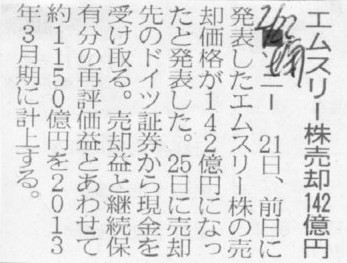 エムスリー株売却142億円
2/22
ニー　21日、前日に
発表したエムスリー株の売
却価格が142億円になっ
たと発表した。25日に売却
先のドイツ証券から現金を
受け取る。売却益と継続保
有分の再評価益とあわせて
約1150億円を2013
年3月期に計上する。